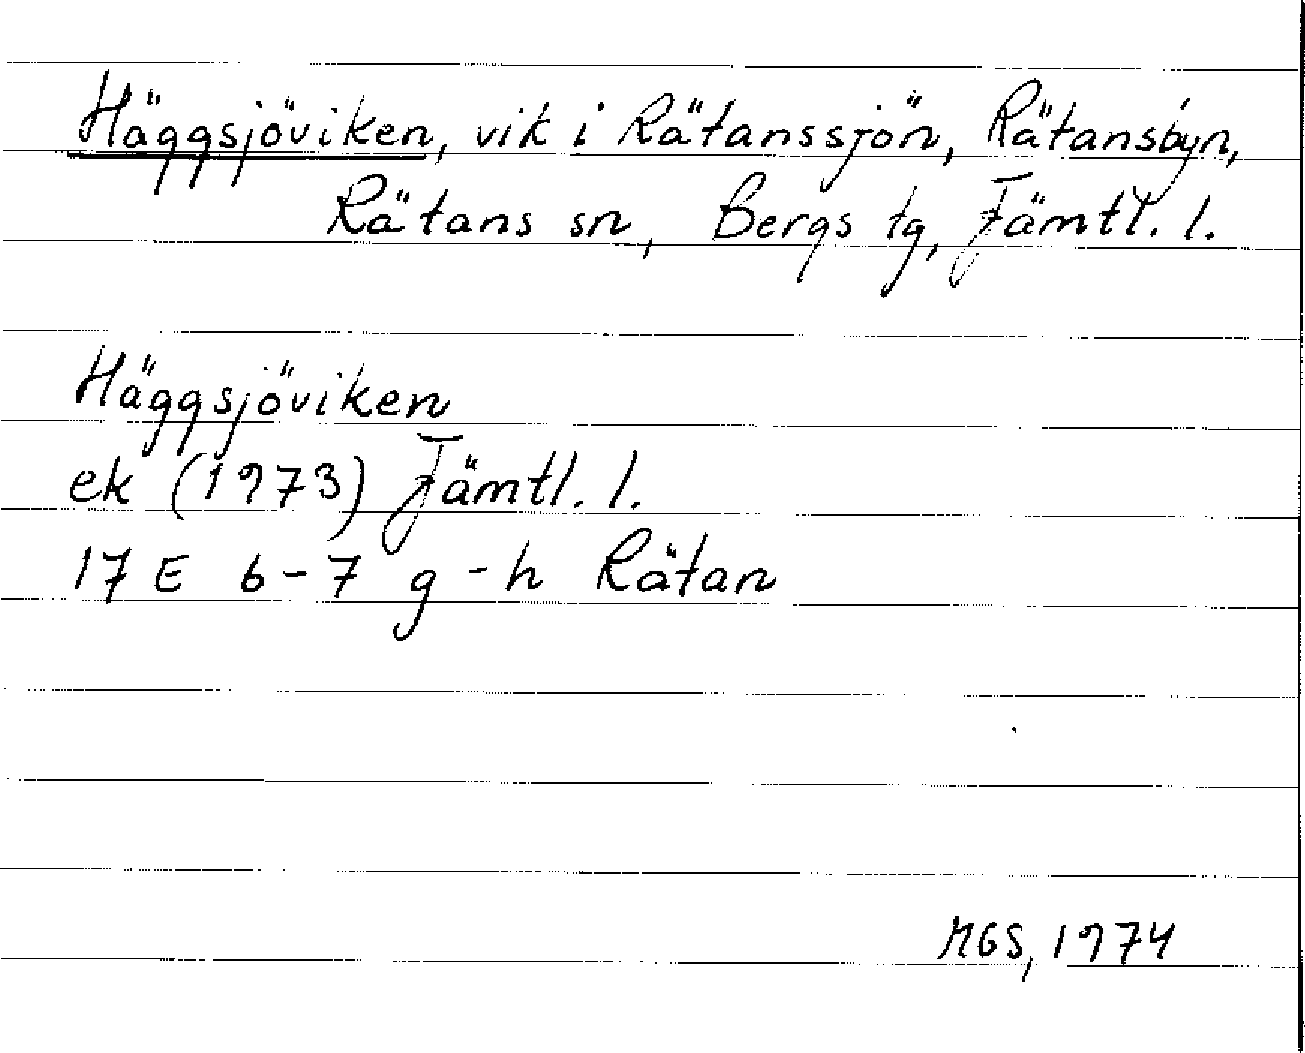 Häggsjöviken, vik i Rätanssjön, Rätansbyn,
Rätans sn, Bergs tg, Jämtl. l.
Häggsjöviken
ek (1973) Jämtl. l.
17 E 6-7 g-h Rätan
MGS, 1974